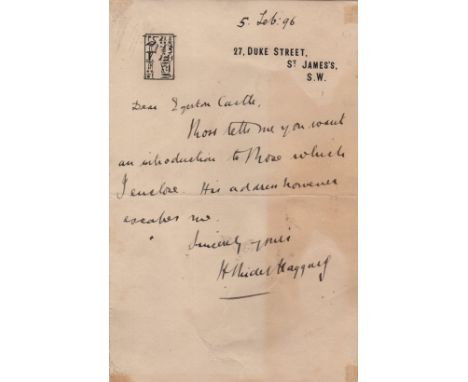 5. Feb: 96
27, DUKE STREET,
ST JAMES'S,
S.W.
Dear Egerton Castle,
Moss tells me you want
an introduction to Moore which
I enclose. His address however
escapes me.
Sincerely yours
H Rider Haggard